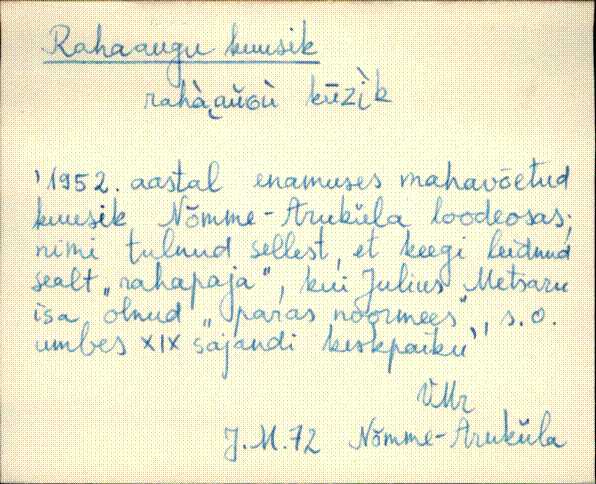 Rahaaugu kuusik
rahà‿aŭGù kūzìk
'1952. aastal enamuses mahavõetud
kuusik Nõmme-Aruküla loodeosas;
nimi tulnud sellest, et keegi leidnud
sealt „rahapaja", kui Julius Metsaru
isa olnud „paras noormees", s.o.
umbes XIX sajandi keskpaiku'
VMr
J.M.72 Nõmme-Aruküla